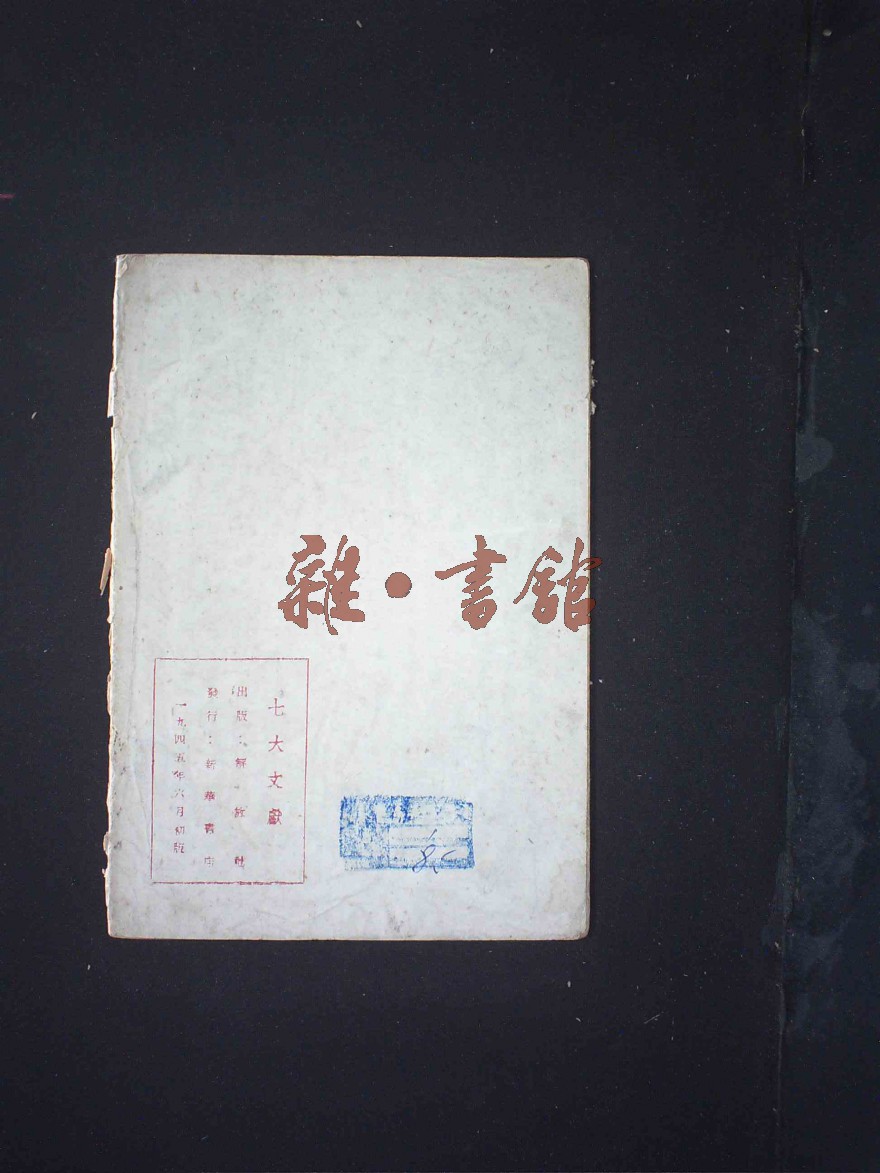 雜·書館
七大文獻
出版：解放社
發行：新華書店
一九四五年六月初版